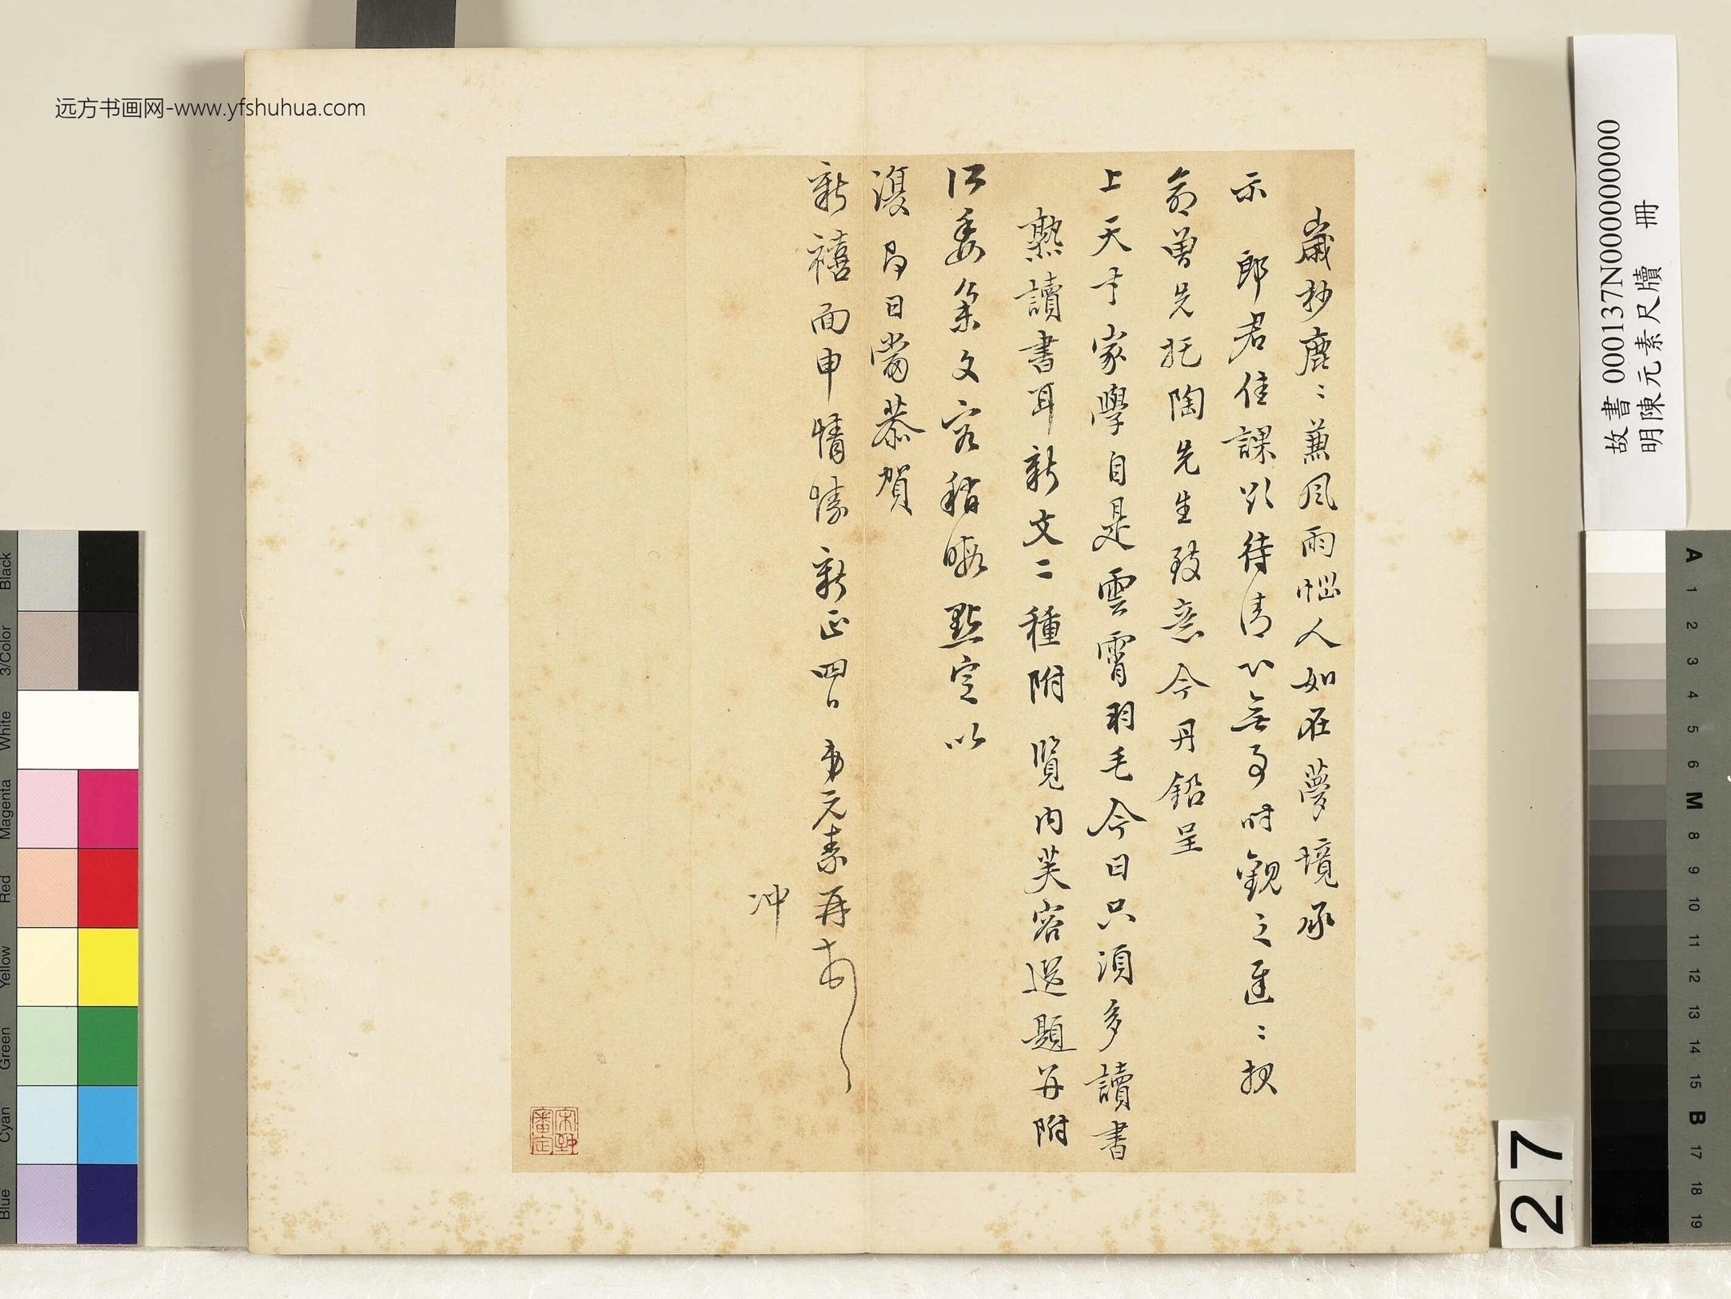 歲抄鹿〻兼風雨惱人如在夢境承
示 郎君佳課以待清心無事時觀之遲〻報
命曾先托陶先生致意今丹鉛呈
上天才家學自是雲霄羽毛今日只須多讀書
熟讀書耳新文二種附 覽内芙容選題並附
以委集文容稍暇點定以
復即日當恭賀
新禧面申情悰新正四日 弟元素再
冲
宋犖審定
故書 000137N000000000
明陳元素尺牘 冊
27
远方书画网-www.yfshuhua.com
Black
3/Color
White
Magenta
Red
Yellow
Green
Cyan
Blue
A 1 2 3 4 5 6 M 8 9 10 11 12 13 14 15 B 17 18 19